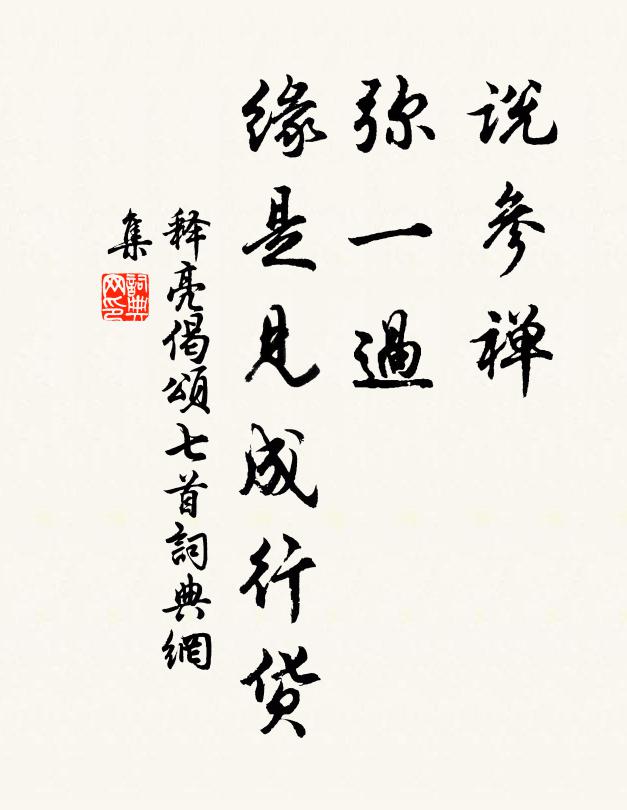 说参禅
弥一過
缘是見成行货
释亮偈頌七首詞典網
集
詞典
网印